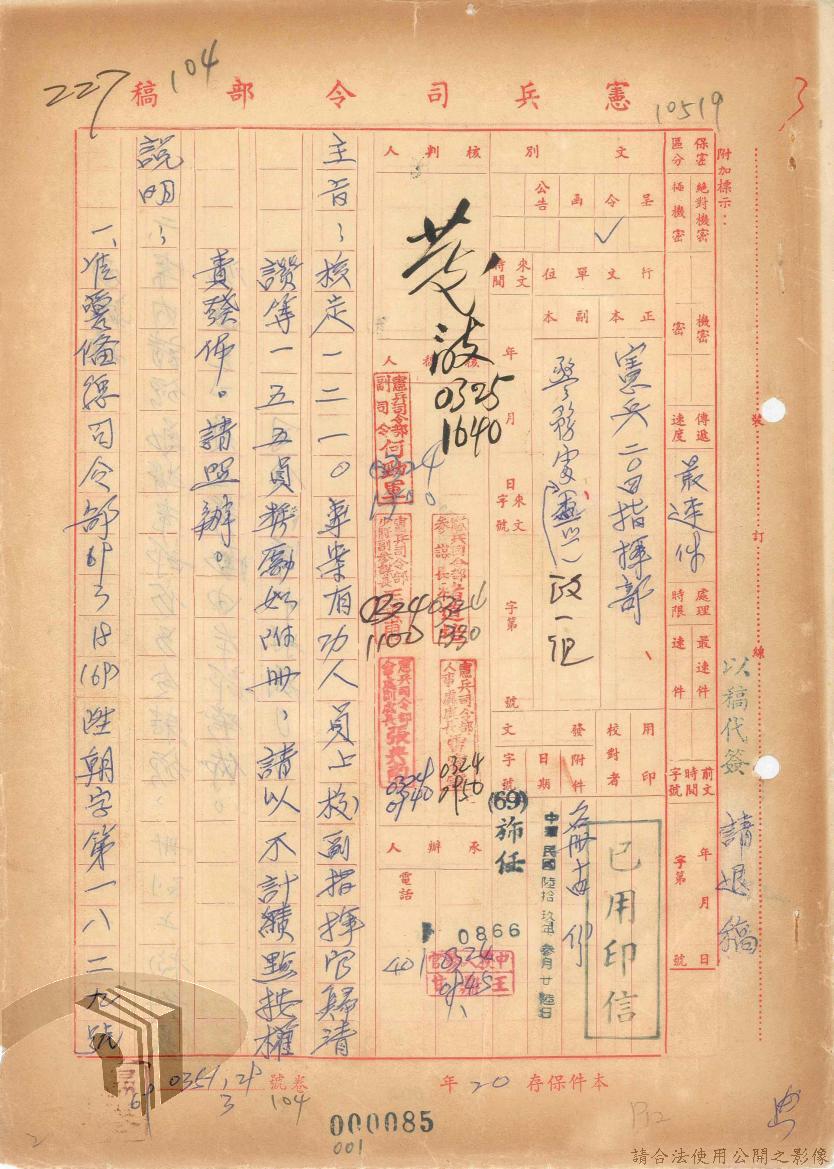 憲兵司令部稿
227
104
10519
附加標示：
保密區分
絕對機密
極機密
機密
密
傳遞速度
最速件
處理時限
最速件
速件
前文時間字號
年月日
字第號
文別
呈
令
函
公告
✓
行文單位
正本
副本
憲兵二0四指揮部
政一組
來文時間
年月日
來文字號
字第號
用印
校對者
發文
附件
日期
字號
名冊壹份
中華民國陸拾玖年參月廿陸日
(69)
0866
已用印信
以稿代簽
請退稿
核判人
0325
1640
承辦人
電話
401
0324
0945
0324
0950
0324
0940
0324
1100
主旨：核定一二一0專案有功人員上校副指揮官歸清
讚等一五五員獎勵如附冊，請以不計績點按權
責發佈。請照辦。
說明：
一、准警備總司令部69 3 18(69)陞朝字第一八二九號
裝訂線
本件保存20年
卷號
104
000085
001
請合法使用公開之影像